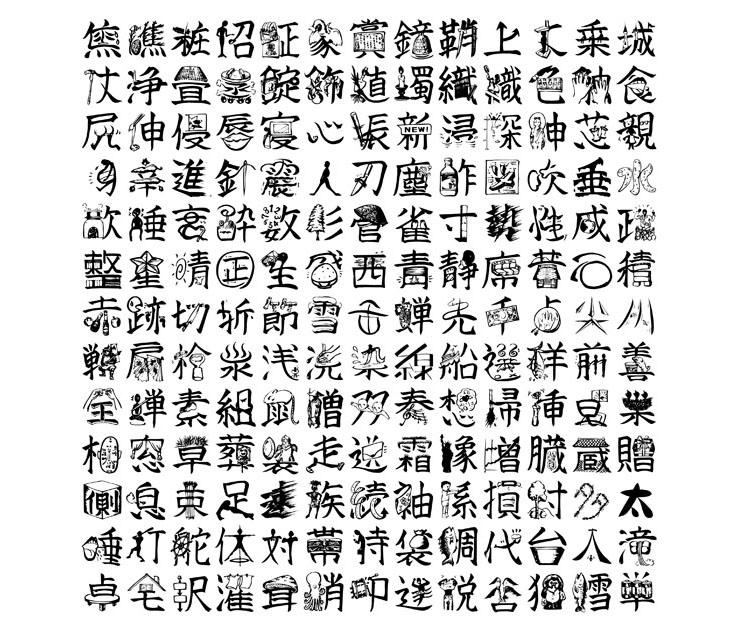 焦礁粧招証象賞鐘鞘上丈乗城
杖浄畳蒸錠飾植燭織職色触食
尻伸唇寝心振新浸深芯親
身辛進針震人刃塵酢図吹垂水
炊睡衰酔数杉菅雀寸勢性成政
整星晴正生盛西青静席石積
赤跡切折節雪舌蝉先千占川
戦扇栓泉浅洗染線船選鮮前善
全禅素組鼠僧双奏想掃挿巣
相窓草葬装走送霜像増臓蔵贈
側息束足速族続袖損村多太
唾打舵体対帯待袋代台大滝
卓宅濯茸蛸叩達脱谷狸鱈単